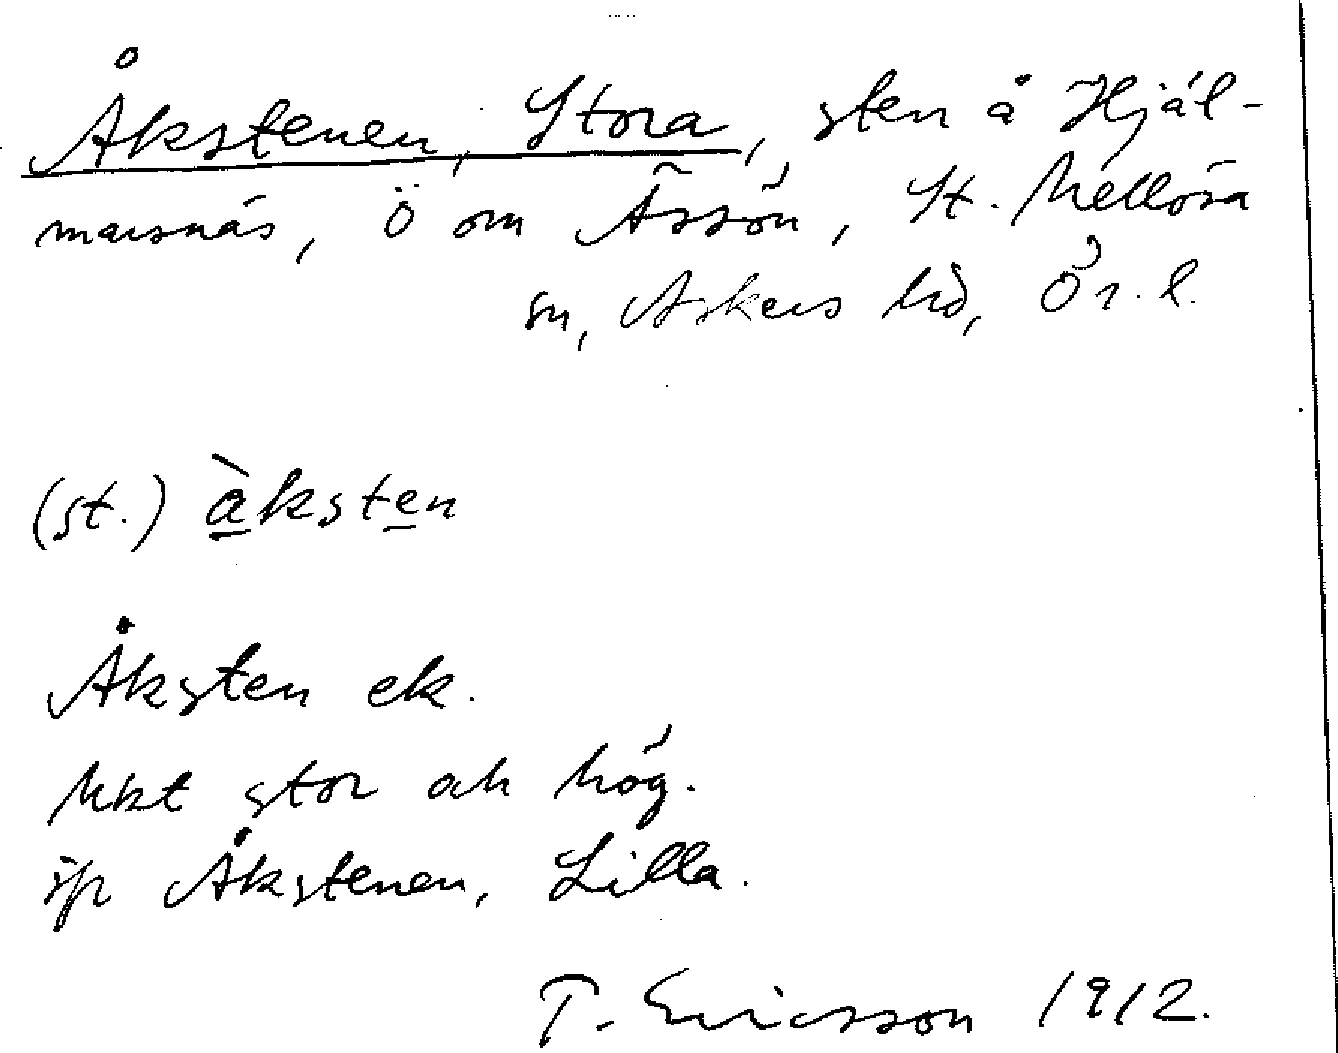 Åkstenen, Stora, sten å Hjäl-
marsnäs, ö om Ässön, St. Mellösa
sn, Askers hd, Ör. l.
(st.) àksten
Åksten ek.
Mkt stor och hög.
Jfr Åkstenen, Lilla.
T. Ericsson 1912.